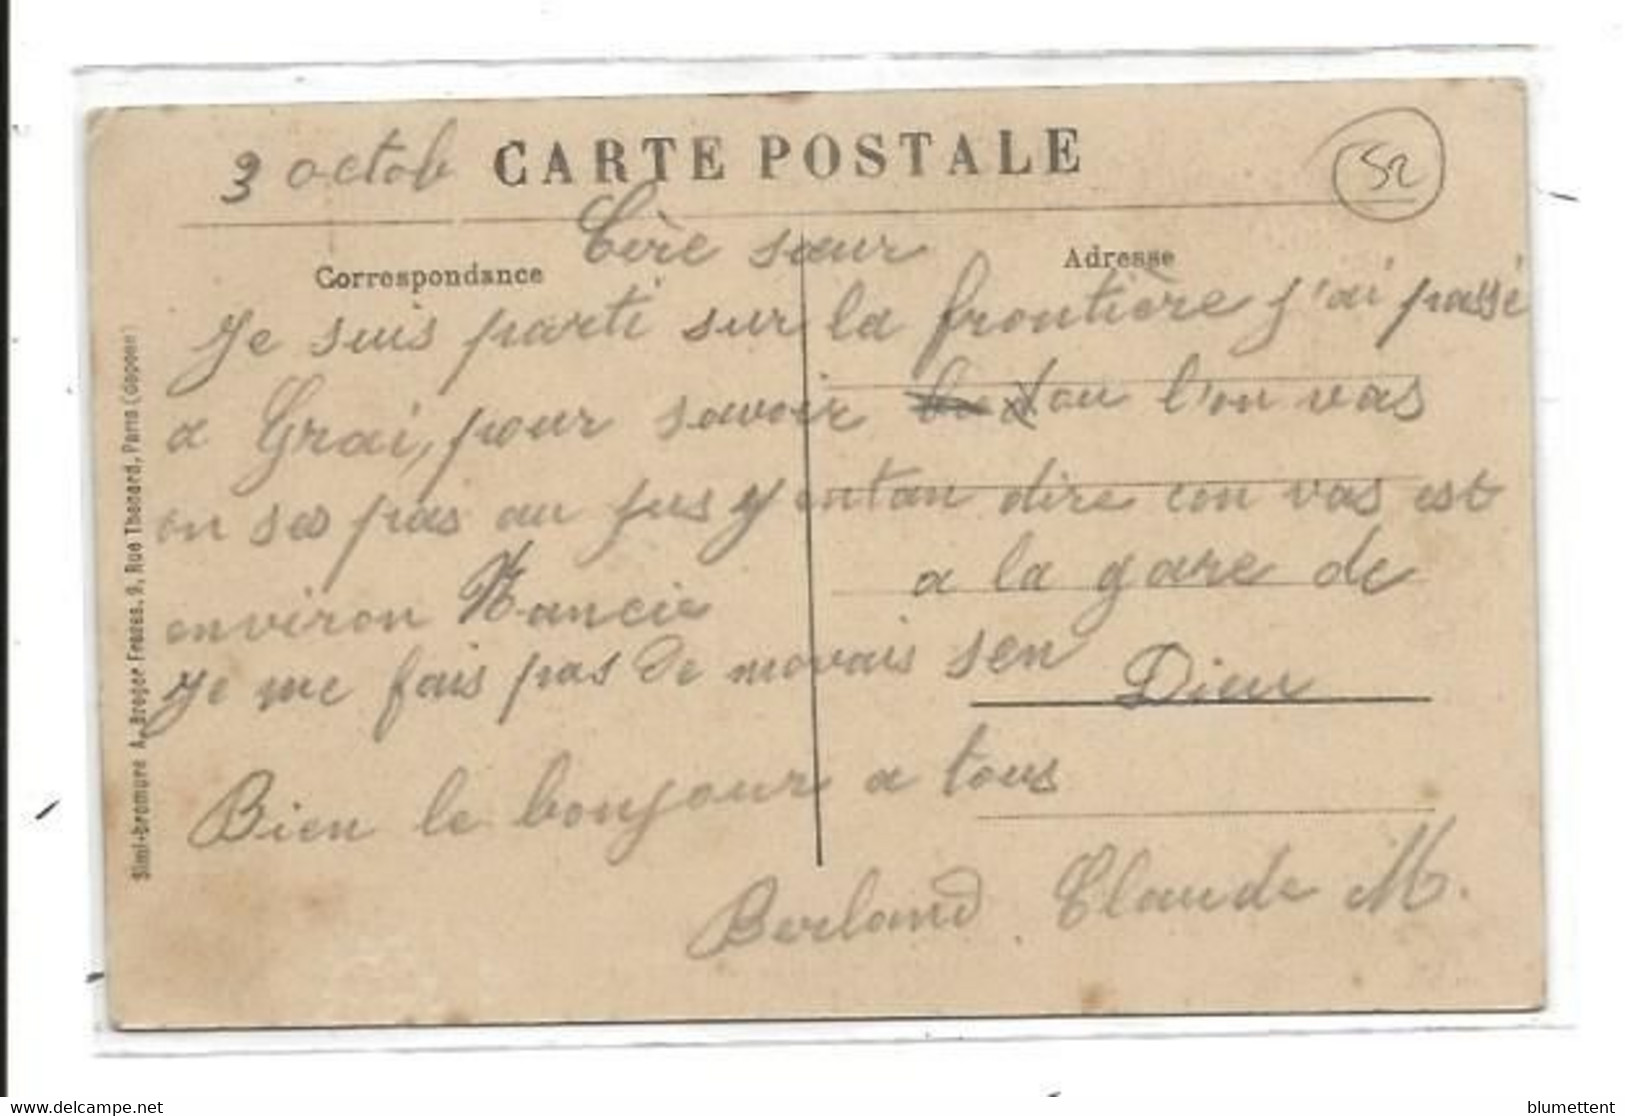 3 octob
CARTE POSTALE
52
Correspondance
Adresse
Cère sœur
Je suis parti sur la frontière j'ai passé
a Grai, pour savoir ou l'on vas
on ses pas au jus y entan dire con vas est
environ Nancie
a la gare de
Je me fais pas de movais sen
Dieu
Bien le bonjour a tous
Berland Claude M.
Simi-bromure A. Breger Freres, 9, Rue Thenard, Paris (dépose)
blumettent